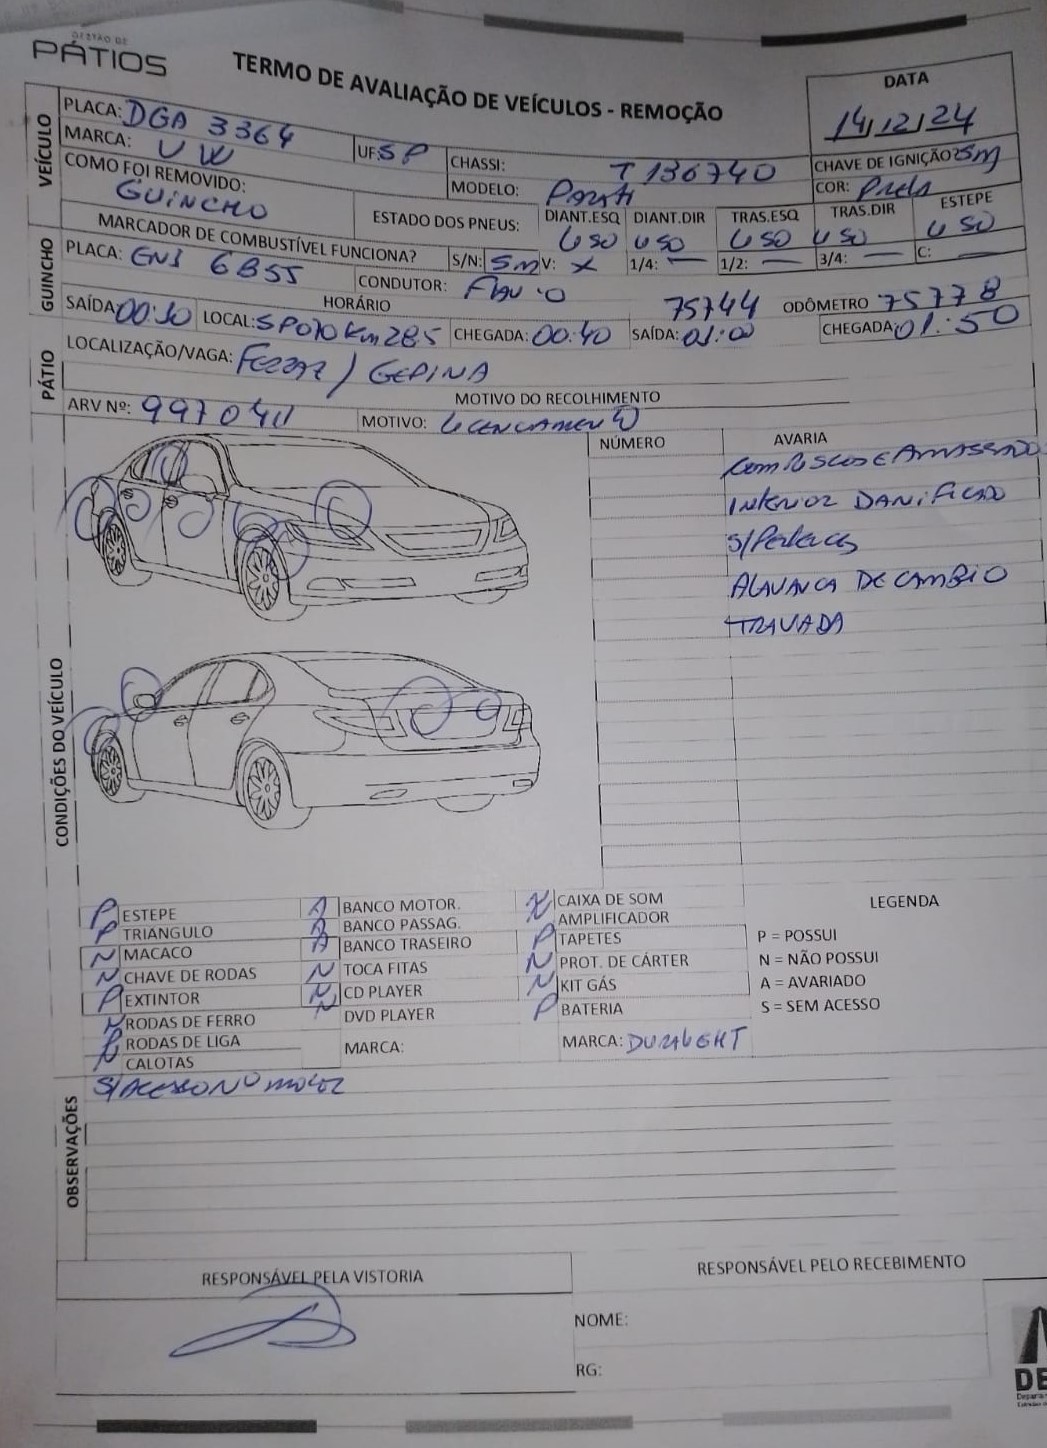 GESTÃO DE
PÁTIOS
TERMO DE AVALIAÇÃO DE VEÍCULOS - REMOÇÃO
DATA
14/12/24
VEÍCULO
PLACA: DGA 3364
MARCA: VW
UF: SP
CHASSI: T136740
CHAVE DE IGNIÇÃO? SIM
COMO FOI REMOVIDO: GUINCHO
MODELO: Parati
COR: Preta
ESTADO DOS PNEUS:
DIANT.ESQ DIANT.DIR TRAS.ESQ TRAS.DIR ESTEPE
USO USO USO USO USO
MARCADOR DE COMBUSTÍVEL FUNCIONA? S/N: SIM V: X 1/4: — 1/2: — 3/4: — C: —
GUINCHO
PLACA: 6B55
CONDUTOR: FLAVIO
HORÁRIO
75744 ODÔMETRO 75778
SAÍDA 00:30 LOCAL: SP070 Km 285 CHEGADA: 00:40 SAÍDA: 01:00 CHEGADA 01:50
PÁTIO
LOCALIZAÇÃO/VAGA: / GEPINA
MOTIVO DO RECOLHIMENTO
ARV Nº: 9970411 MOTIVO: LICENCIAMENTO
CONDIÇÕES DO VEÍCULO
NÚMERO AVARIA
COM RISCOS E AMASSADO
INTERIOR DANIFICADO
ALAVANCA DE CAMBIO
TRAVADA
P ESTEPE
P TRIANGULO
N MACACO
N CHAVE DE RODAS
P EXTINTOR
N RODAS DE FERRO
P RODAS DE LIGA
N CALOTAS
A BANCO MOTOR.
A BANCO PASSAG.
A BANCO TRASEIRO
N TOCA FITAS
N CD PLAYER
N DVD PLAYER
MARCA:
CAIXA DE SOM
AMPLIFICADOR
P TAPETES
N PROT. DE CÁRTER
N KIT GÁS
P BATERIA
MARCA: DURALIGHT
LEGENDA
P = POSSUI
N = NÃO POSSUI
A = AVARIADO
S = SEM ACESSO
OBSERVAÇÕES
S/ACESSO Nº MOTOR
RESPONSÁVEL PELA VISTORIA
RESPONSÁVEL PELO RECEBIMENTO
NOME:
RG:
DE